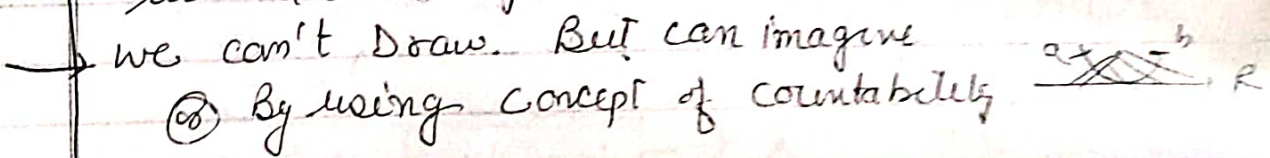 → we can't Draw. But can imagine
(or) By using concept of countability
a b
R